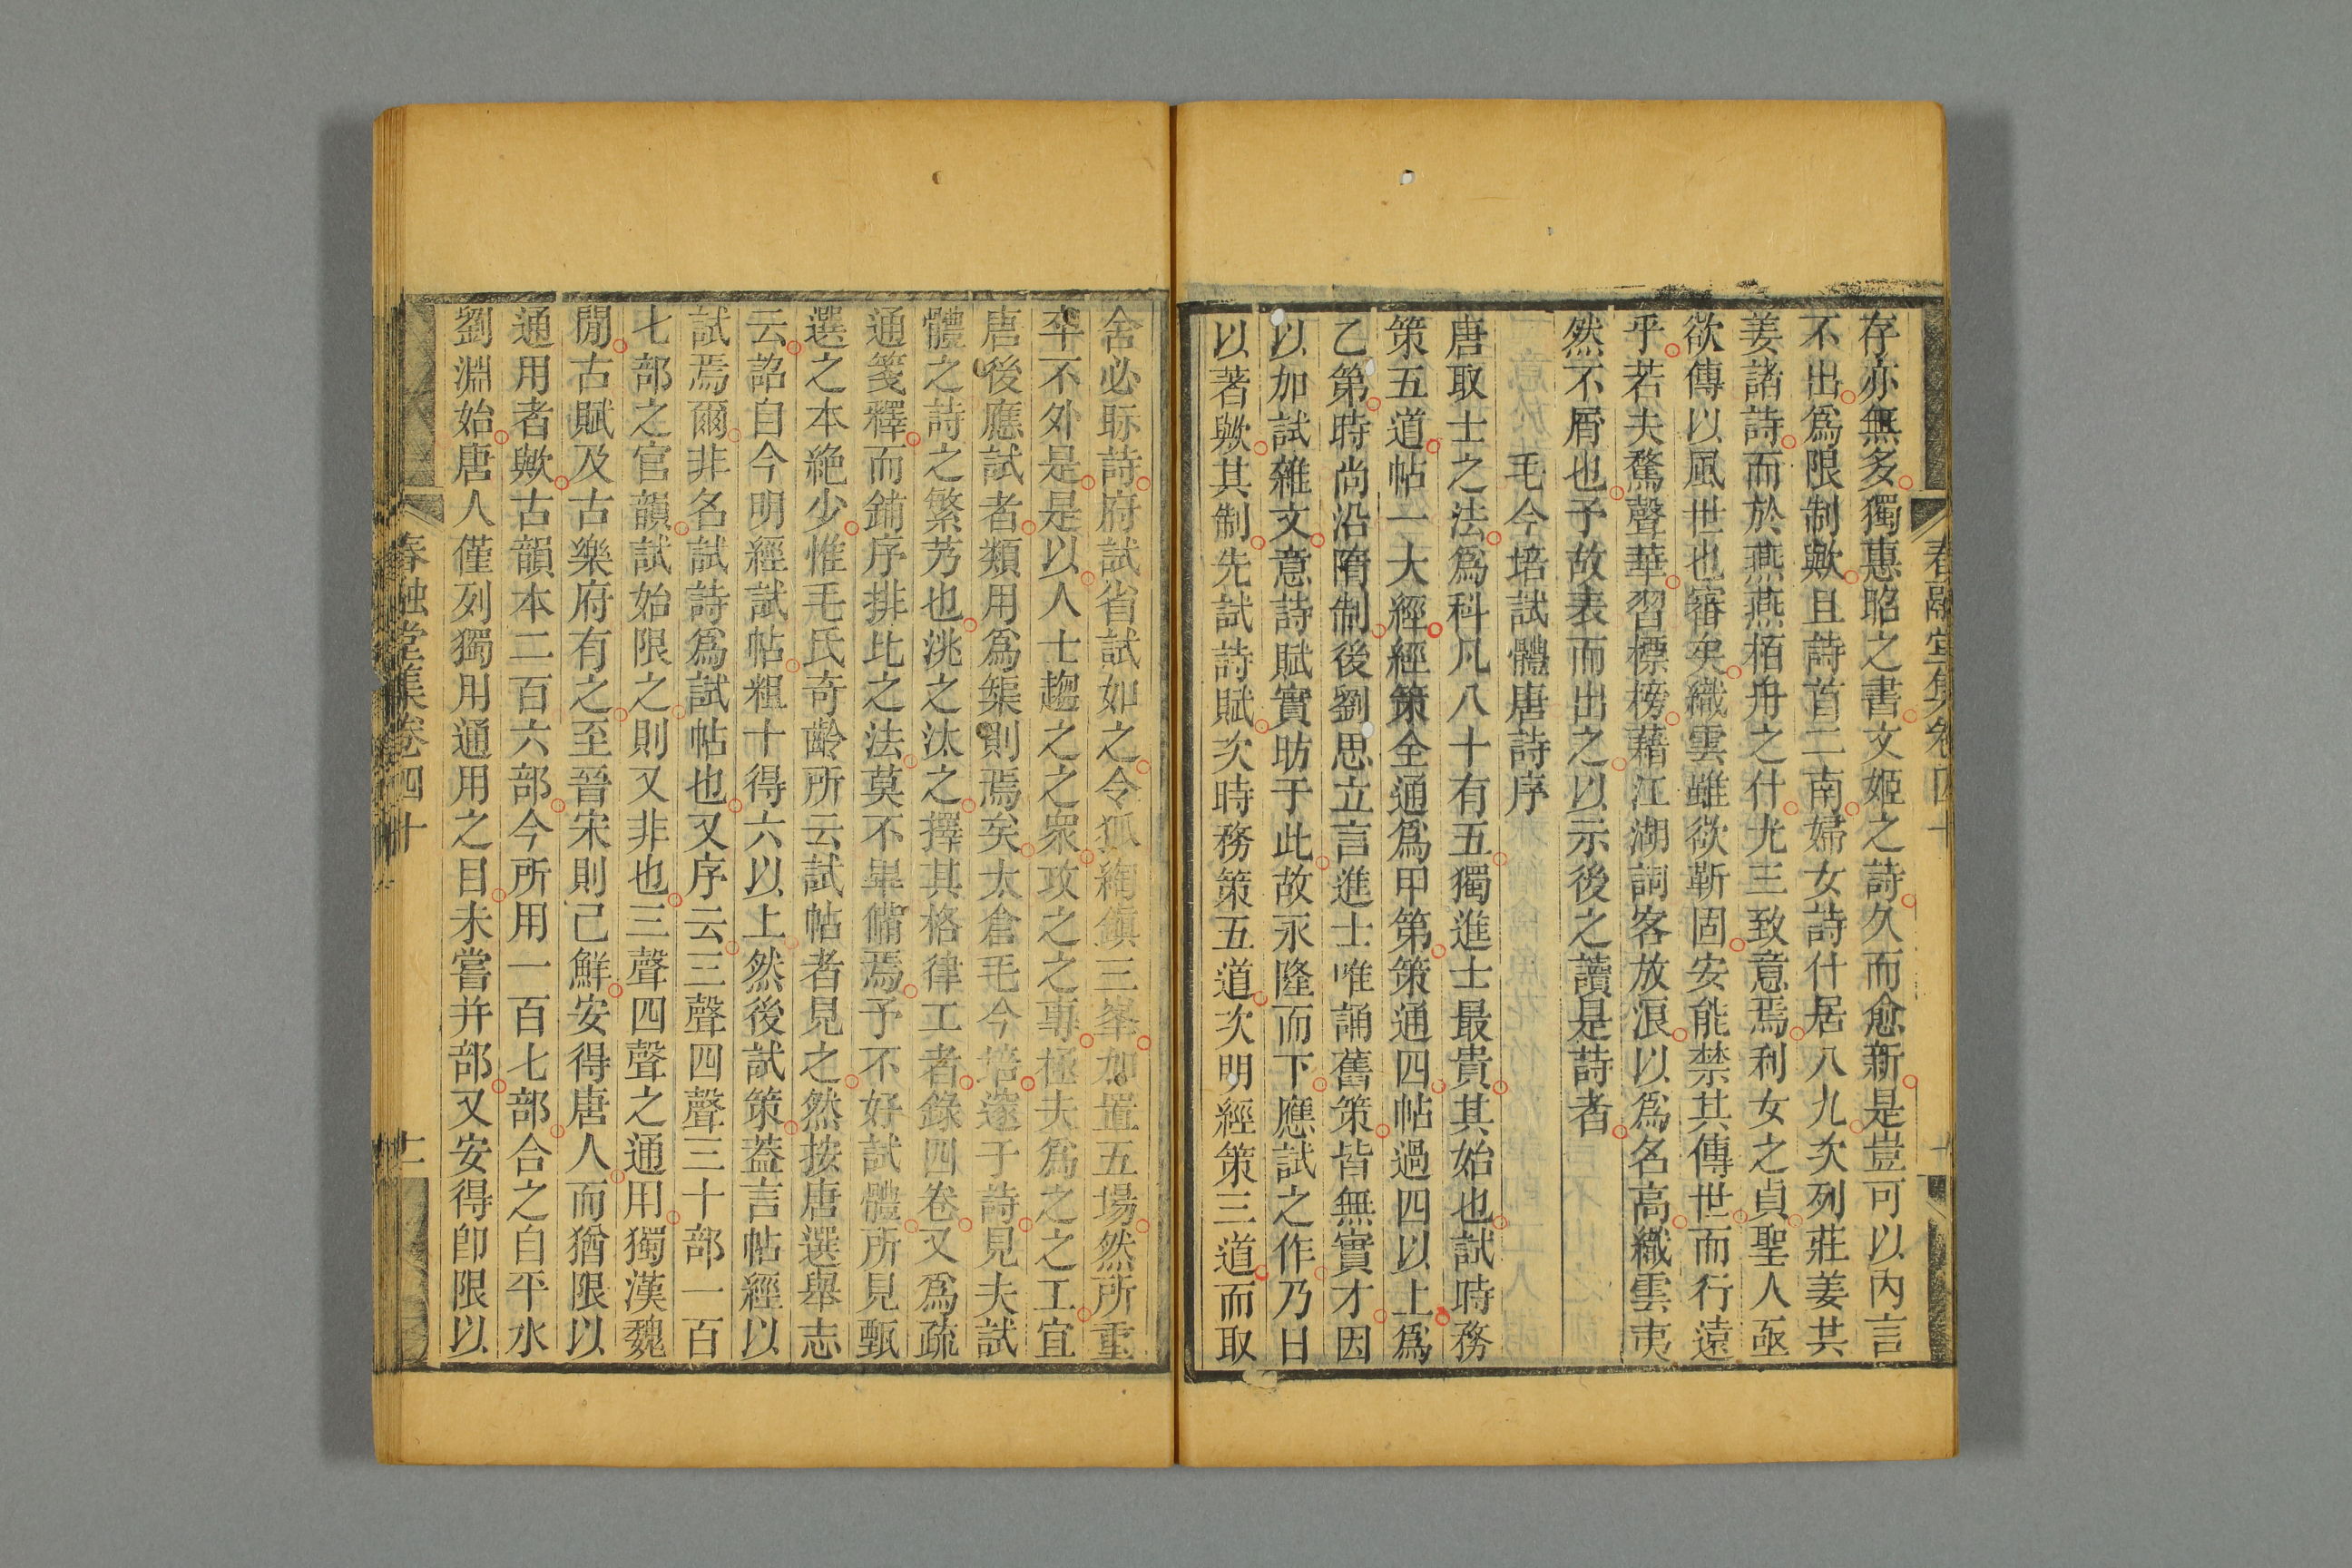 春融堂集卷四十
存亦無多獨惠昭之書文姬之詩久而愈新是豈可以內言
不出爲限制歟且詩首二南婦女詩什居八九次列莊姜共
姜諸詩而於燕燕栢舟之什尤三致意焉利女之貞聖人亟
欲傳以風世也審矣織雲雖欲靳固安能禁其傳世而行遠
乎若夫騖聲華習標榜藉江湖詞客放浪以爲名高織雲夷
然不屑也予故表而出之以示後之讀是詩者
毛今培試體唐詩序
唐取士之法爲科凡八十有五獨進士最貴其始也試時務
策五道帖一大經經策全通爲甲第策通四帖過四以上爲
乙第時尚沿隋制後劉思立言進士唯誦舊策皆無實才因
以加試雜文意詩賦實昉于此故永隆而下應試之作乃日
以著歟其制先試詩賦次時務策五道次明經策三道而取
舍必眎詩府試省試如之令狐綯鎮三峯加置五場然所重
卒不外是是以人士趨之之衆攻之之專極夫爲之之工宜
唐後應試者類用爲榘則焉矣太倉毛今培邃于詩見夫試
體之詩之繁芿也洮之汰之擇其格律工者錄四卷又爲疏
通箋釋而鋪序排比之法莫不畢備焉予不好試體所見甄
選之本絶少惟毛氏奇齡所云試帖者見之然按唐選舉志
云詔自今明經試帖粗十得六以上然後試策蓋言帖經以
試焉爾非名試詩爲試帖也又序云三聲四聲三十部一百
七部之官韻試始限之則又非也三聲四聲之通用獨漢魏
閒古賦及古樂府有之至晉宋則已鮮安得唐人而猶限以
通用者歟古韻本二百六部今所用一百七部合之自平水
劉淵始唐人僅列獨用通用之目未嘗并部又安得卽限以
春融堂集卷四十
十二